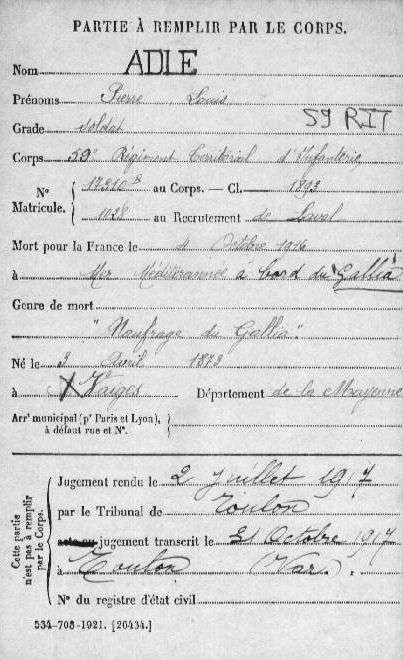 PARTIE À REMPLIR PAR LE CORPS.
Nom ADLE
Prénoms Pierre, Louis
59 RIT
Grade soldat
Corps 59e Régiment Territorial d'Infanterie
N° Matricule. { 17210 B au Corps. — Cl. 1893
1028 au Recrutement de Laval
Mort pour la France le 4 Octobre 1916
à Mer Méditerrannée a bord du "Gallia
Genre de mort
"Naufrage du Gallia".
Né le 3 Avril 1873
à X Vaiges Département de la Mayenne
Arrt municipal (pr Paris et Lyon), à défaut rue et N°.
Cette partie n'est pas à remplir par le Corps.
Jugement rendu le 2 juillet 1917
par le Tribunal de Toulon
acte ou jugement transcrit le 31 Octobre 1917
à Toulon Var.
N° du registre d'état civil
534-708-1921. [20434.]